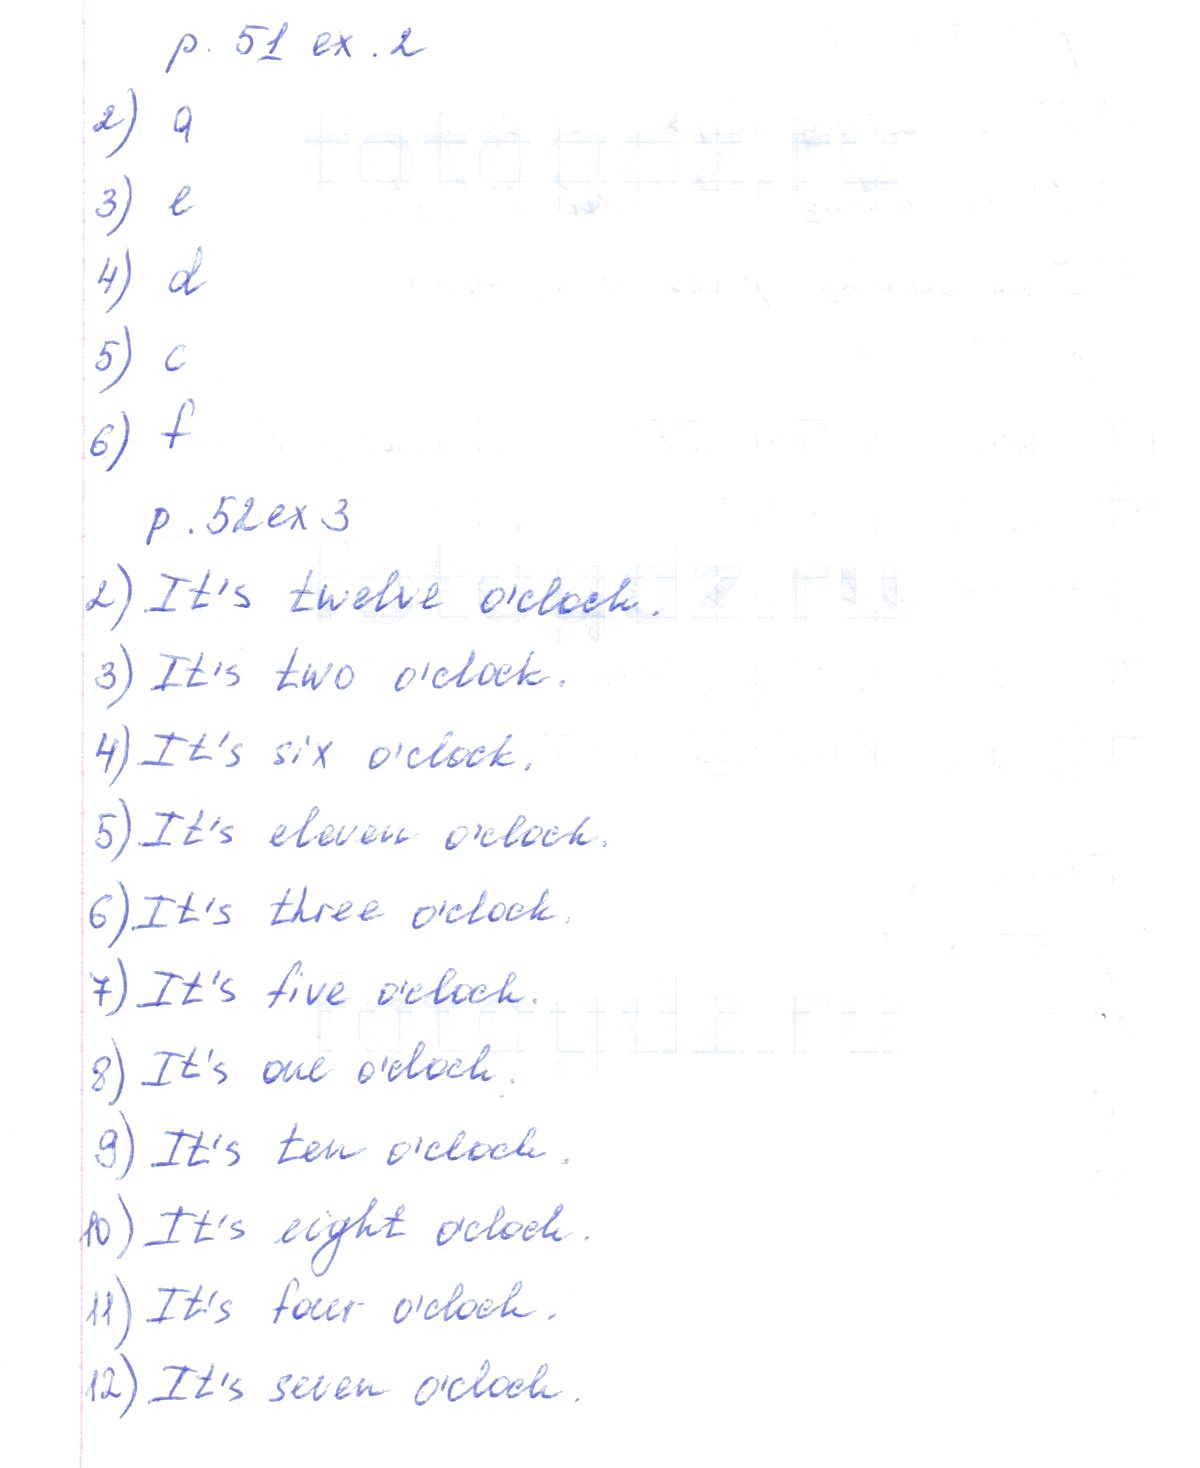 p. 51 ex. 2
2) a
3) e
4) d
5) c
6) f
p. 52 ex 3
2) It's twelve o'clock.
3) It's two o'clock.
4) It's six o'clock.
5) It's eleven o'clock.
6) It's three o'clock.
7) It's five o'clock.
8) It's one o'clock.
9) It's ten o'clock.
10) It's eight o'clock.
11) It's four o'clock.
12) It's seven o'clock.
fotogdz.ru
fotogdz.ru
fotogdz.ru